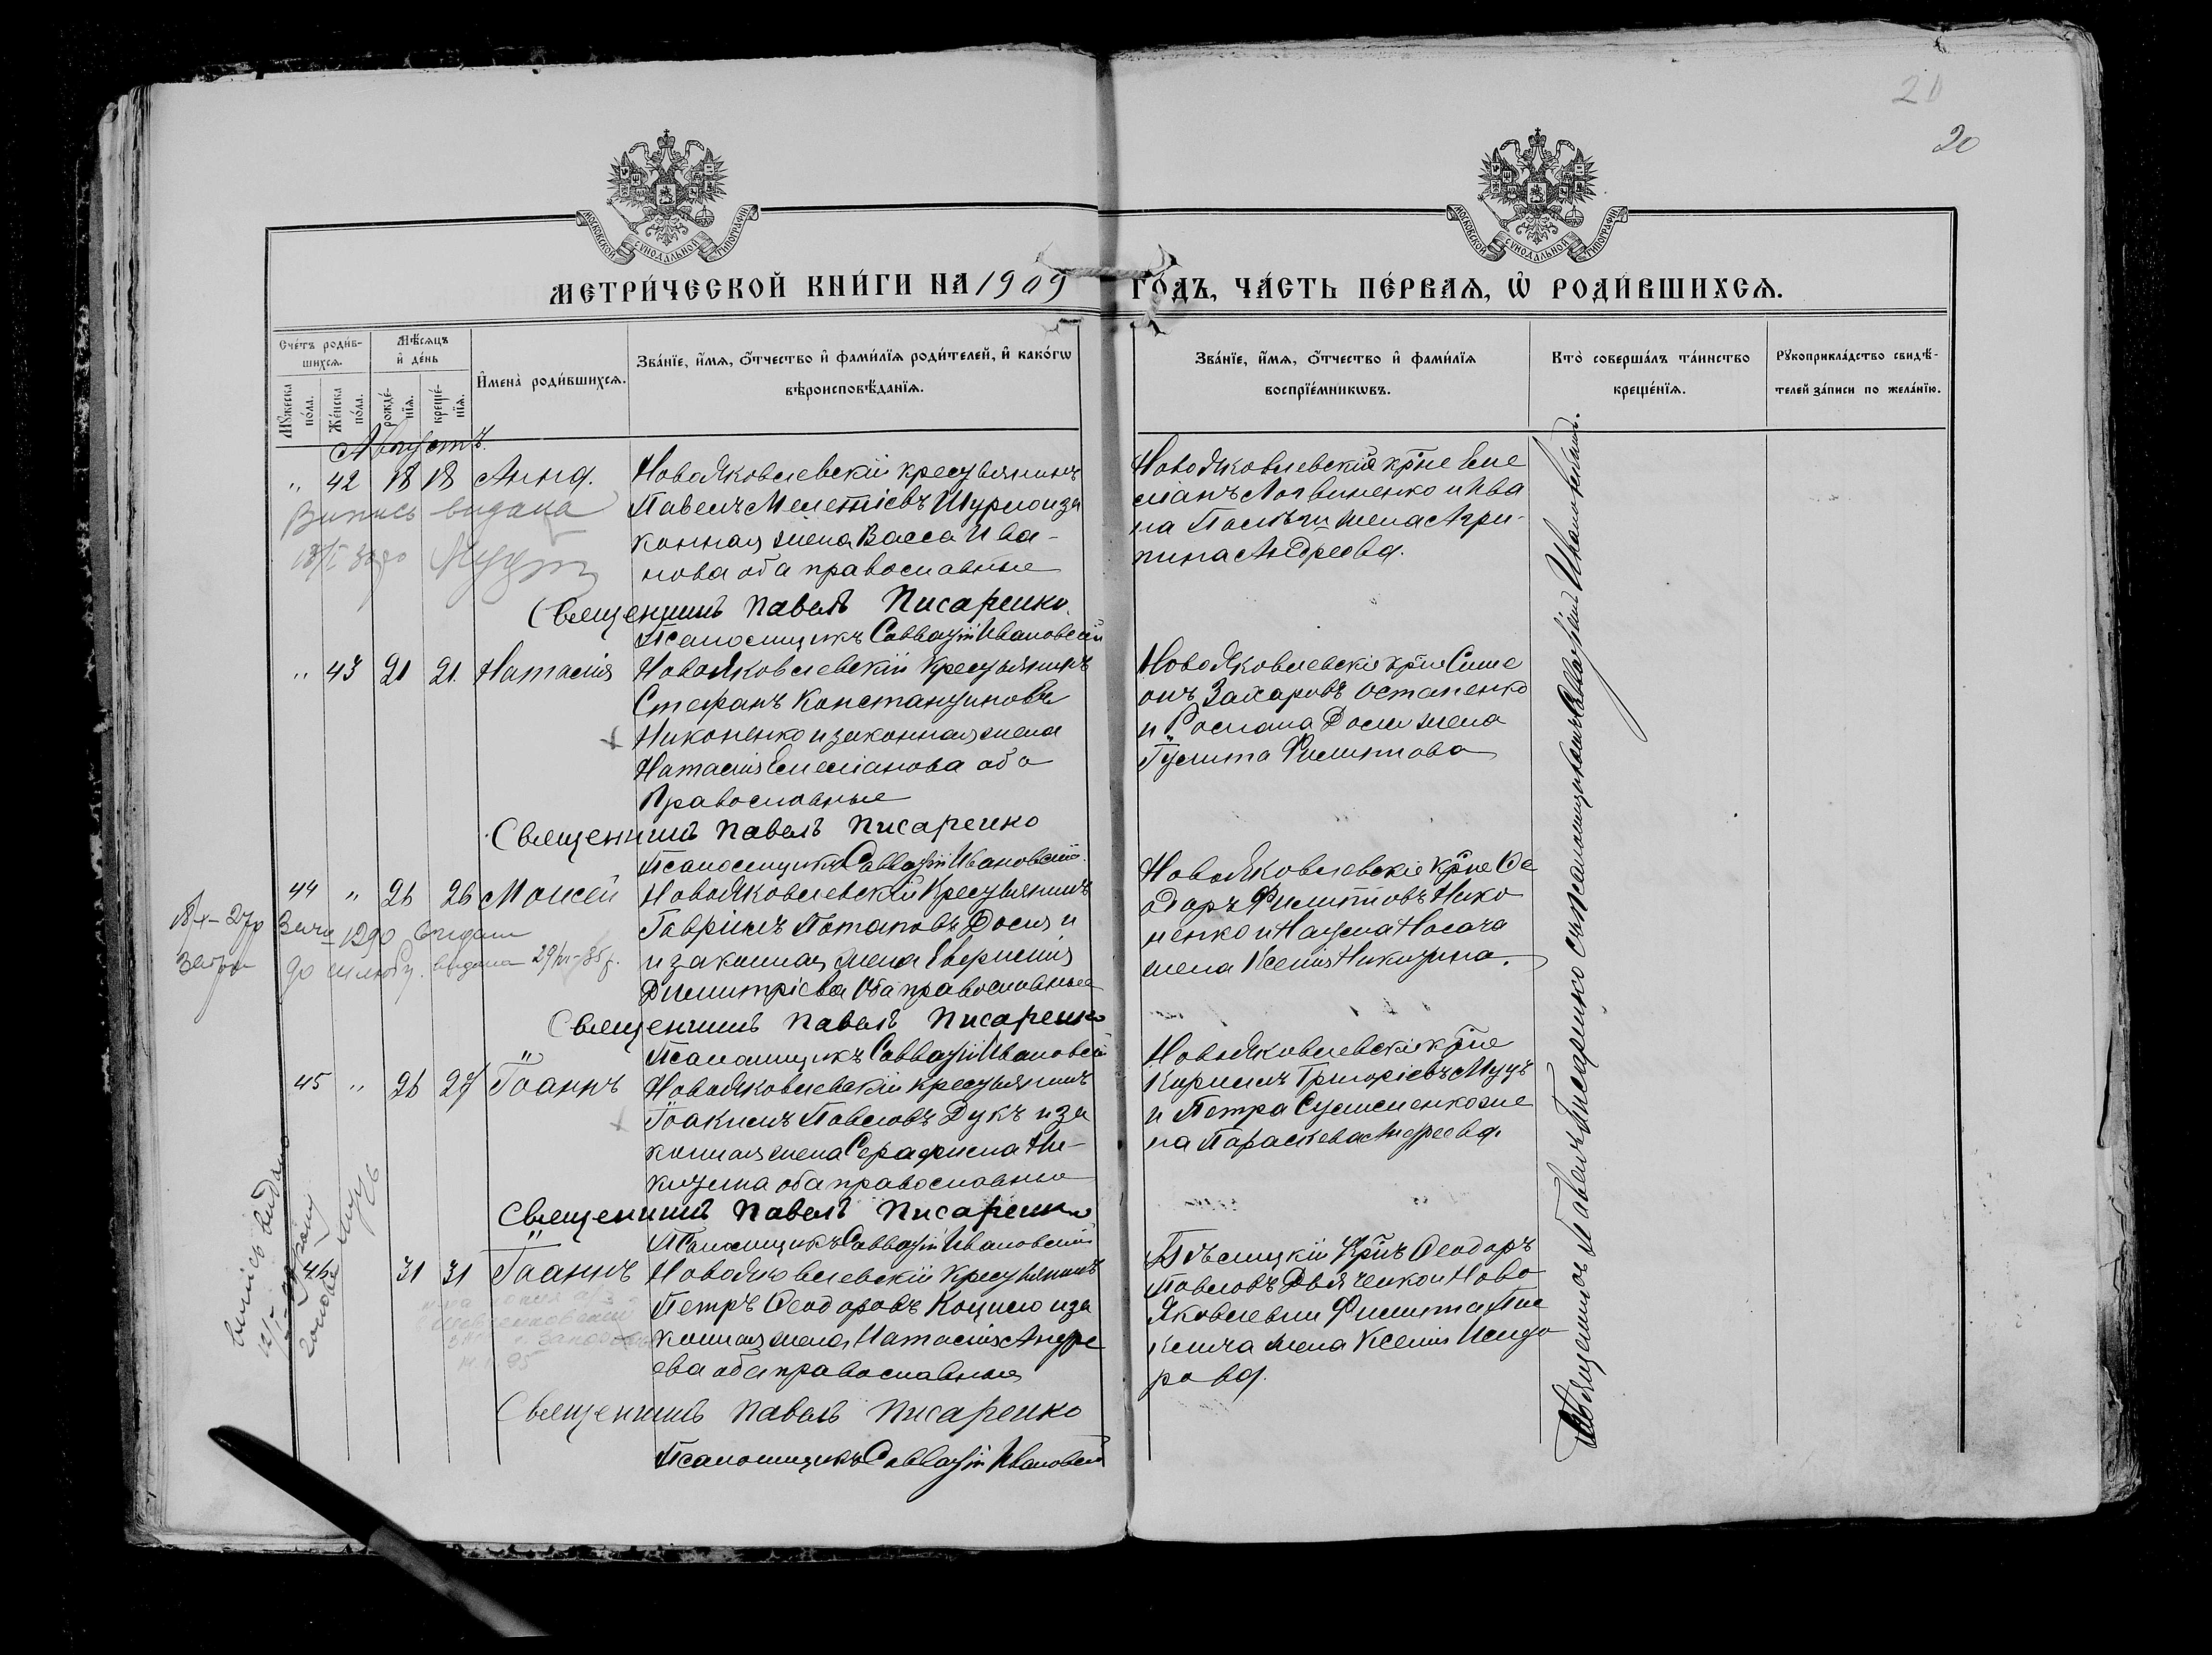 20
МОСКОВСКОЙ СѴНОДАЛЬНОЙ ТИПОГРАФІИ
МОСКОВСКОЙ СѴНОДАЛЬНОЙ ТИПОГРАФІИ
МЕТРИ́ЧЕСКОЙ КНИ́ГИ НА 1909 ГО́ДЪ, ЧА́СТЬ ПЕ́РВАЯ, Ѽ РОДИ́ВШИХСЯ.
Сче́тъ роди́в-
шихся.
Мꙋ́жеска по́ла.
Же́нска по́ла.
Мѣ́сяцъ и҆ де́нь
рожде́-нїя.
креще́-нїя.
И҆мена̀ роди́вшихся.
Зва́нїе, и҆́мя, ѻ҆́тчество и҆ фами́лїя роди́телей, и҆ како́гѡ
вѣроисповѣ́данїя.
Зва́нїе, и҆́мя, ѻ҆́тчество и҆ фами́лїя
воспрїе́мникѡвъ.
Кто̀ соверша́лъ та́инство
креще́нїя.
Рꙋкоприкла́дство свидѣ́-
телей за́писи по жела́нїю.
Августъ.
" 42 18 18 Анна.
Новояковлевскій крестьянинъ
Павелъ Мелетіевъ Шурло и за
конная жена Васса Ива-
нова оба православные
Новояковлевскіе кр̃не Еме
ліанъ Логвиненко и Ива
на жена Агри-
пина Андреева.
Випись видана
Священникъ Павелъ Писаренко.
Псаломщикъ Савватій Ивановскій
" 43 21 21. Наталія
Новояковлевскій крестьянинъ
Стефанъ Константиновъ
Никоненко и законная жена
Наталія Емеліанова оба
Православные
Новояковлевскіе кр̃не Симе
онъ Захаровъ Остапенко
и Романа Доли жена
Іулита Филиппова
Священникъ Павелъ Писаренко
Псаломщикъ Савватій Ивановскій.
44 " 26 26 Моисей
Новояковлевскій Крестьянинъ
Гавріилъ Потаповъ Доля и
и законная жена Евфимія
Димитріева Оба православные
Новояковлевскіе кр̃не Ѳе
одоръ Филипповъ Нико
ненко и Наума Носача
жена Ксенія Никитина.
1290 видана
до шлюбу. видана 29/VI-35 р.
Священникъ Павелъ Писаренко
Псаломщикъ Савватій Ивановскій
45 " 26 27 Іоаннъ
Новояковлевскій крестьянинъ
Іоакимъ Павловъ Дукъ и за
конная жена Серафима Ни-
китина оба православные
Новояковлевскіе кр̃не
Кириллъ Григоріевъ Муцъ
и Петра же
на Параскева Андреева.
Священникъ Павелъ Писаренко
Псаломщикъ Савватій Ивановскій
46 31 31 Іоаннъ
Новояковлевскій крестьянинъ
Петръ Ѳеодоровъ Коцило и за
конная жена Наталія Андре
ева оба православные
кр̃нъ Ѳеодоръ
Павловъ Дьяченко и Ново
яковлевки Филиппа
жена Ксенія Исидо
рова.
Священникъ Павелъ Писаренко
Псаломщикъ Савватій Ивановскій
Священникъ Павелъ Писаренко съ псаломщикомъ Савватіемъ Ивановскимъ.